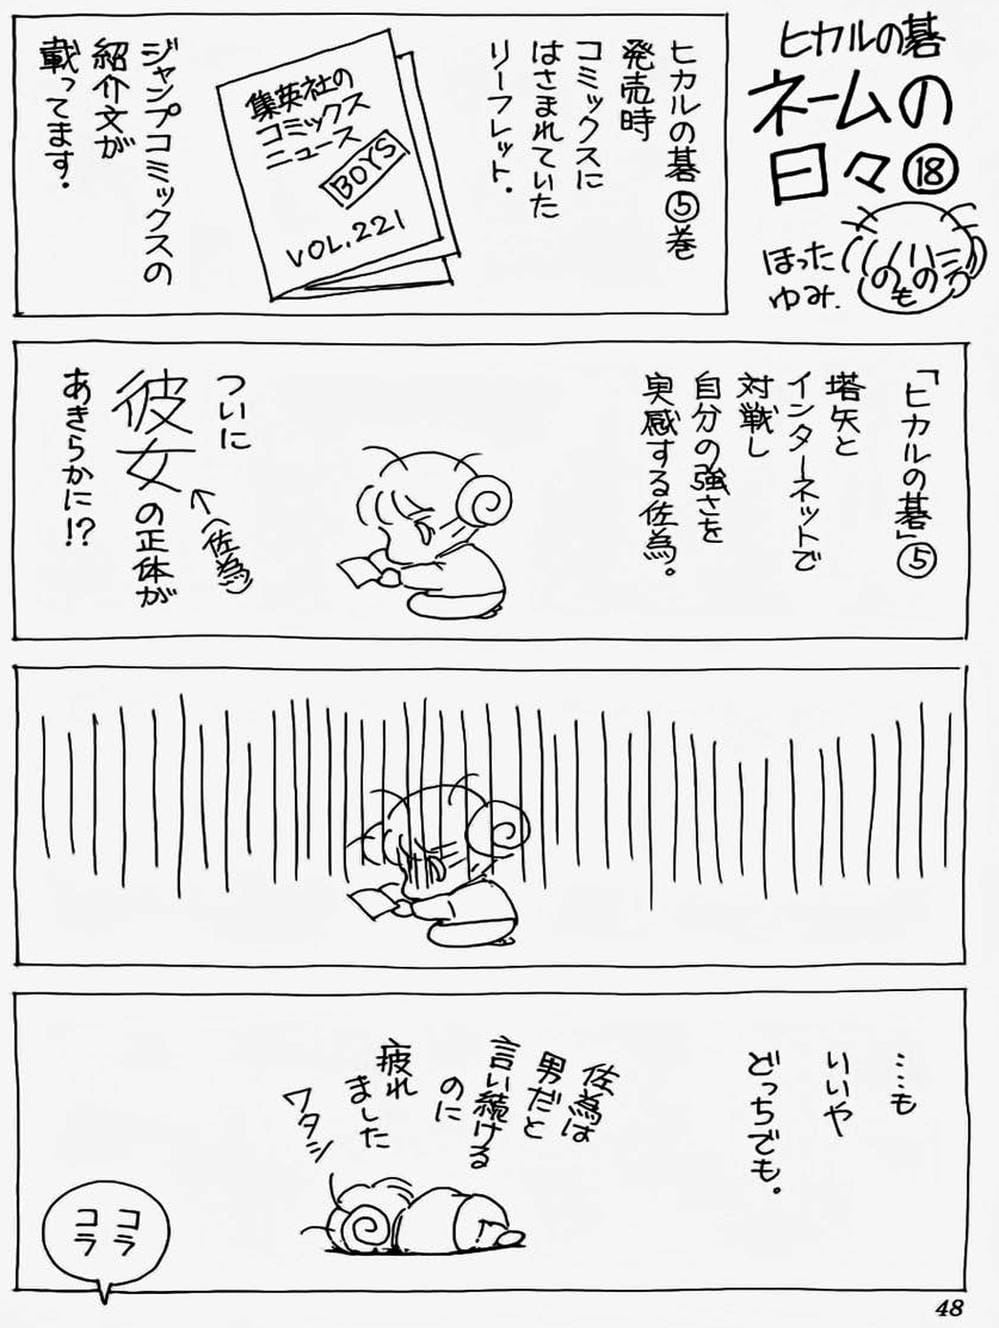 ヒカルの碁
ネームの
日々⑱
ほった
ゆみ.
のものう
ヒカルの碁⑤巻
発売時
コミックスに
はさまれていた
リーフレット.
集英社の
コミックス
ニュース
BOYS
VOL.221
ジャンプコミックスの
紹介文が
載ってます.
「ヒカルの碁」⑤
塔矢と
インターネットで
対戦し
自分の強さを
実感する佐為。
ついに
彼女の正体が
(佐為)
あきらかに!?
……も
いいや
どっちでも.
佐為は
男だと
言い続ける
のに
疲れ
ました
ワタシ
コラ
コラ
48